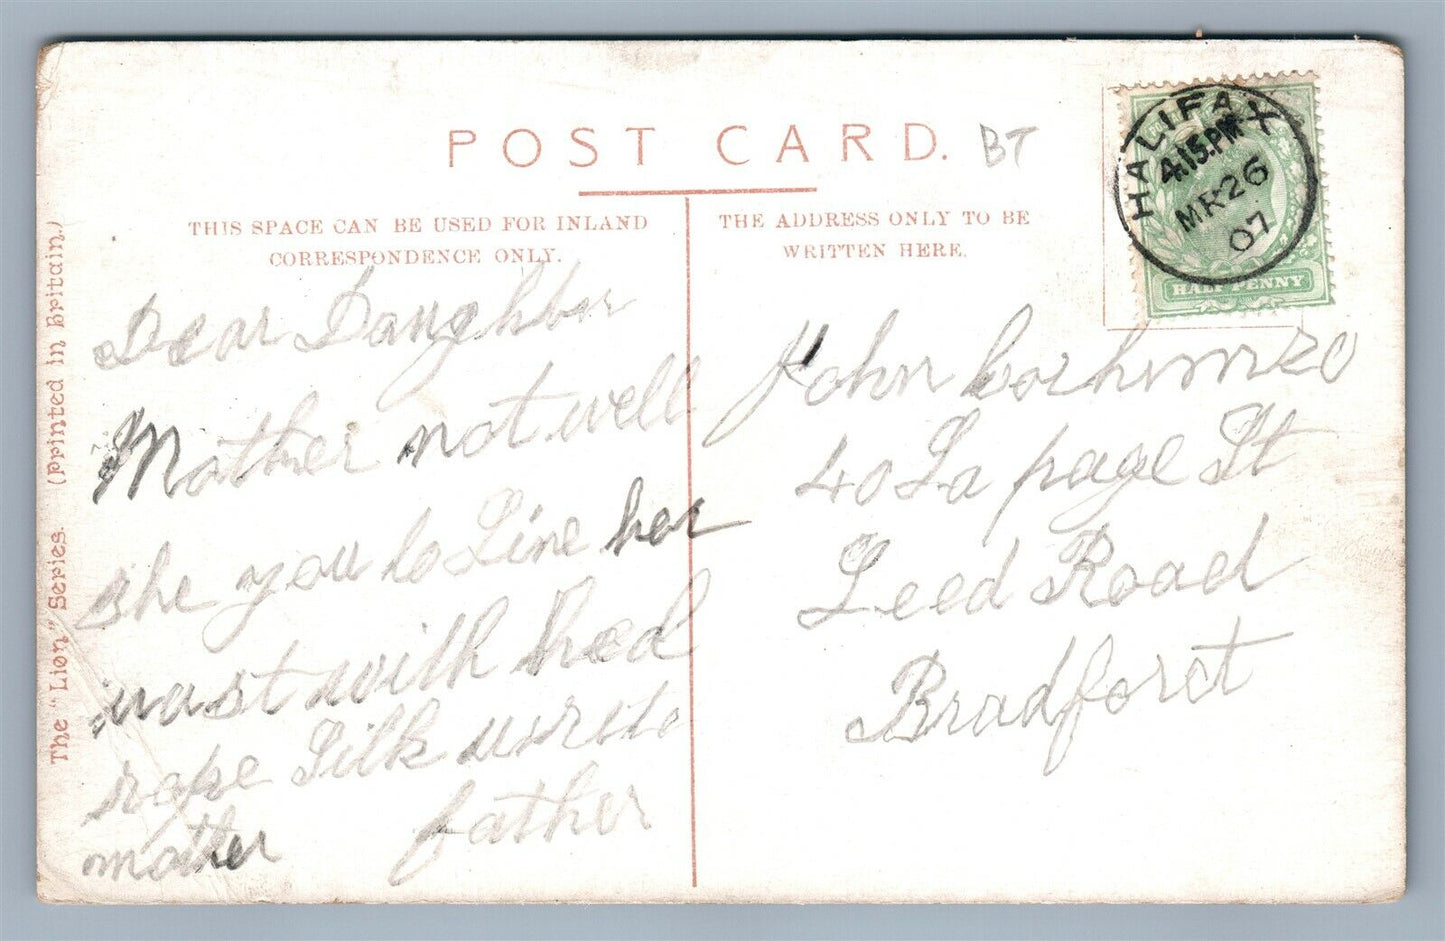 POST CARD.
BT
HALIFAX
4.15.PM
MR 26
07
HALF PENNY
THIS SPACE CAN BE USED FOR INLAND
CORRESPONDENCE ONLY.
THE ADDRESS ONLY TO BE
WRITTEN HERE.
The "Lion" Series. (Printed in Britain.)
Dear Daughter
Mother not well
she you to Line her
with
Silk
mother father
John
40 La page St
Leed Road
Bradford